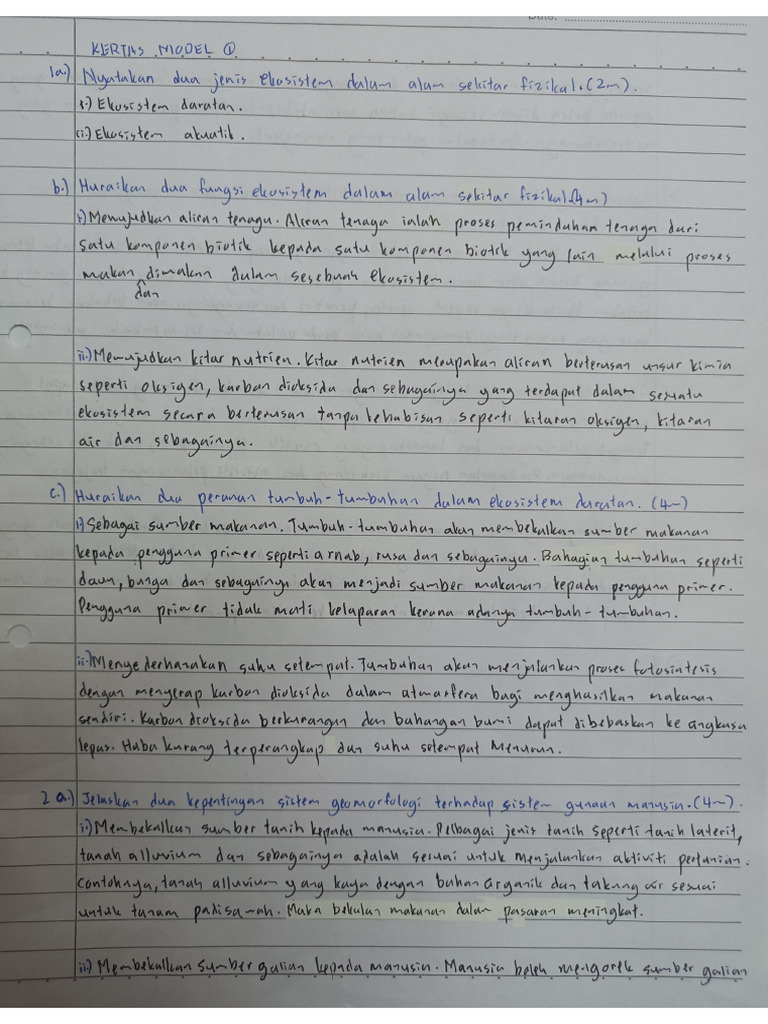 Date:
KERTAS MODEL ①
1a.) Nyatakan dua jenis ekosistem dalam alam sekitar fizikal. (2m).
i.) Ekosistem daratan.
ii.) Ekosistem akuatik.
b.) Huraikan dua fungsi ekosistem dalam alam sekitar fizikal. (4m)
i.) Mewujudkan aliran tenaga. Aliran tenaga ialah proses pemindahan tenaga dari
satu komponen biotik kepada satu komponen biotik yang lain melalui proses
makan dimakan dalam sesebuah ekosistem.
dan
ii.) Mewujudkan kitar nutrien. Kitar nutrien merupakan aliran berterusan unsur kimia
seperti oksigen, karbon dioksida dan sebagainya yang terdapat dalam sesuatu
ekosistem secara berterusan tanpa kehabisan seperti kitaran oksigen, kitaran
air dan sebagainya.
c.) Huraikan dua peranan tumbuh-tumbuhan dalam ekosistem daratan. (4m)
i) Sebagai sumber makanan. Tumbuh-tumbuhan akan membekalkan sumber makanan
kepada pengguna primer seperti arnab, rusa dan sebagainya. Bahagian tumbuhan seperti
daun, bunga dan sebagainya akan menjadi sumber makanan kepada pengguna primer.
Pengguna primer tidak mati kelaparan kerana adanya tumbuh-tumbuhan.
ii.) Menyederhanakan suhu setempat. Tumbuhan akan menjalankan proses fotosintesis
dengan menyerap karbon dioksida dalam atmosfera bagi menghasilkan makanan
sendiri. Karbon dioksida berkurangan dan bahangan bumi dapat dibebaskan ke angkasa
lepas. Haba kurang terperangkap dan suhu setempat menurun.
2 a.) Jelaskan dua kepentingan sistem geomorfologi terhadap sistem gunaan manusia. (4m).
i.) Membekalkan sumber tanih kepada manusia. Pelbagai jenis tanih seperti tanih laterit,
tanah alluvium dan sebagainya adalah sesuai untuk menjalankan aktiviti pertanian.
Contohnya, tanah alluvium yang kaya dengan bahan organik dan takung air sesuai
untuk tanam padi sawah. Maka bekalan makanan dalam pasaran meningkat.
ii.) Membekalkan sumber galian kepada manusia. Manusia boleh mengorek sumber galian